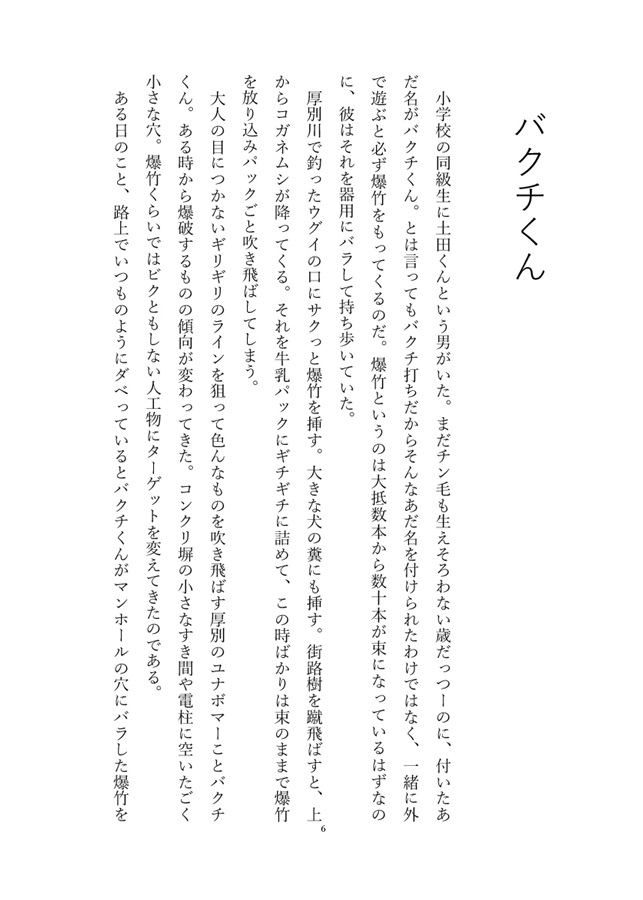 バクチくん
　小学校の同級生に土田くんという男がいた。まだチン毛も生えそろわない歳だっつーのに、付いたあ
だ名がバクチくん。とは言ってもバクチ打ちだからそんなあだ名を付けられたわけではなく、一緒に外
で遊ぶと必ず爆竹をもってくるのだ。爆竹というのは大抵数本から数十本が束になっているはずなの
に、彼はそれを器用にバラして持ち歩いていた。
　厚別川で釣ったウグイの口にサクっと爆竹を挿す。大きな犬の糞にも挿す。街路樹を蹴飛ばすと、上
からコガネムシが降ってくる。それを牛乳パックにギチギチに詰めて、この時ばかりは束のままで爆竹
を放り込みパックごと吹き飛ばしてしまう。
　大人の目につかないギリギリのラインを狙って色んなものを吹き飛ばす厚別のユナボマーことバクチ
くん。ある時から爆破するものの傾向が変わってきた。コンクリ塀の小さなすき間や電柱に空いたごく
小さな穴。爆竹くらいではビクともしない人工物にターゲットを変えてきたのである。
　ある日のこと、路上でいつものようにダベっているとバクチくんがマンホールの穴にバラした爆竹を
6